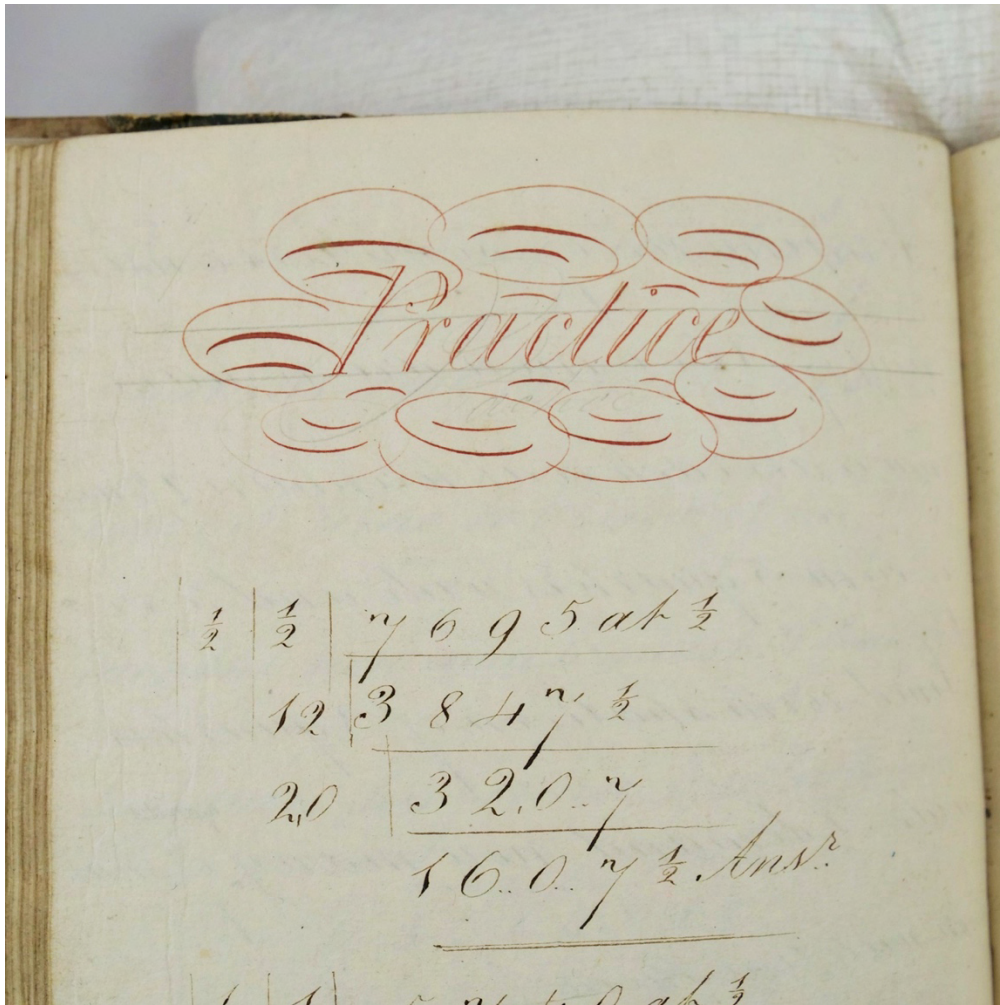 Practice
½ ½ 7695 at ½
12 3847 ½
2,0 32,0..7
16..0..7 ½ Ansr.